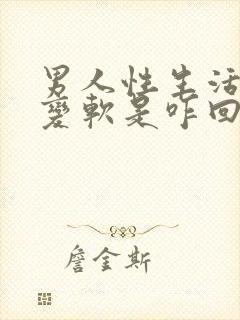 男人性生活
變軟是咋回
詹金斯